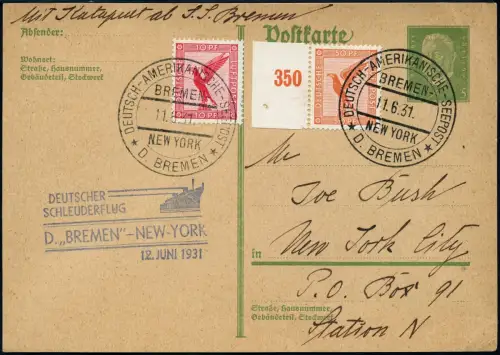 Mit Katapult ab S.S. Bremen
Absender:
Wohnort:
Straße, Hausnummer,
Gebäudeteil, Stockwerk
Postkarte
10 PF
10 PF
350
50 PF
50 PF
5
DEUTSCH-AMERIKANISCHE SEEPOST
BREMEN-
11.6.31.
NEW YORK
★ D. BREMEN ★
DEUTSCH-AMERIKANISCHE-SEEPOST
BREMEN-
11.6.31.
NEW YORK
★ D. BREMEN ★
DEUTSCHER
SCHLEUDERFLUG
D. „BREMEN"-NEW-YORK
12. JUNI 1931
Mr
Joe Bush
in
New York City
P.O. Box 91
Straße, Hausnummer,
Gebäudeteil, Stockwerk
Station N